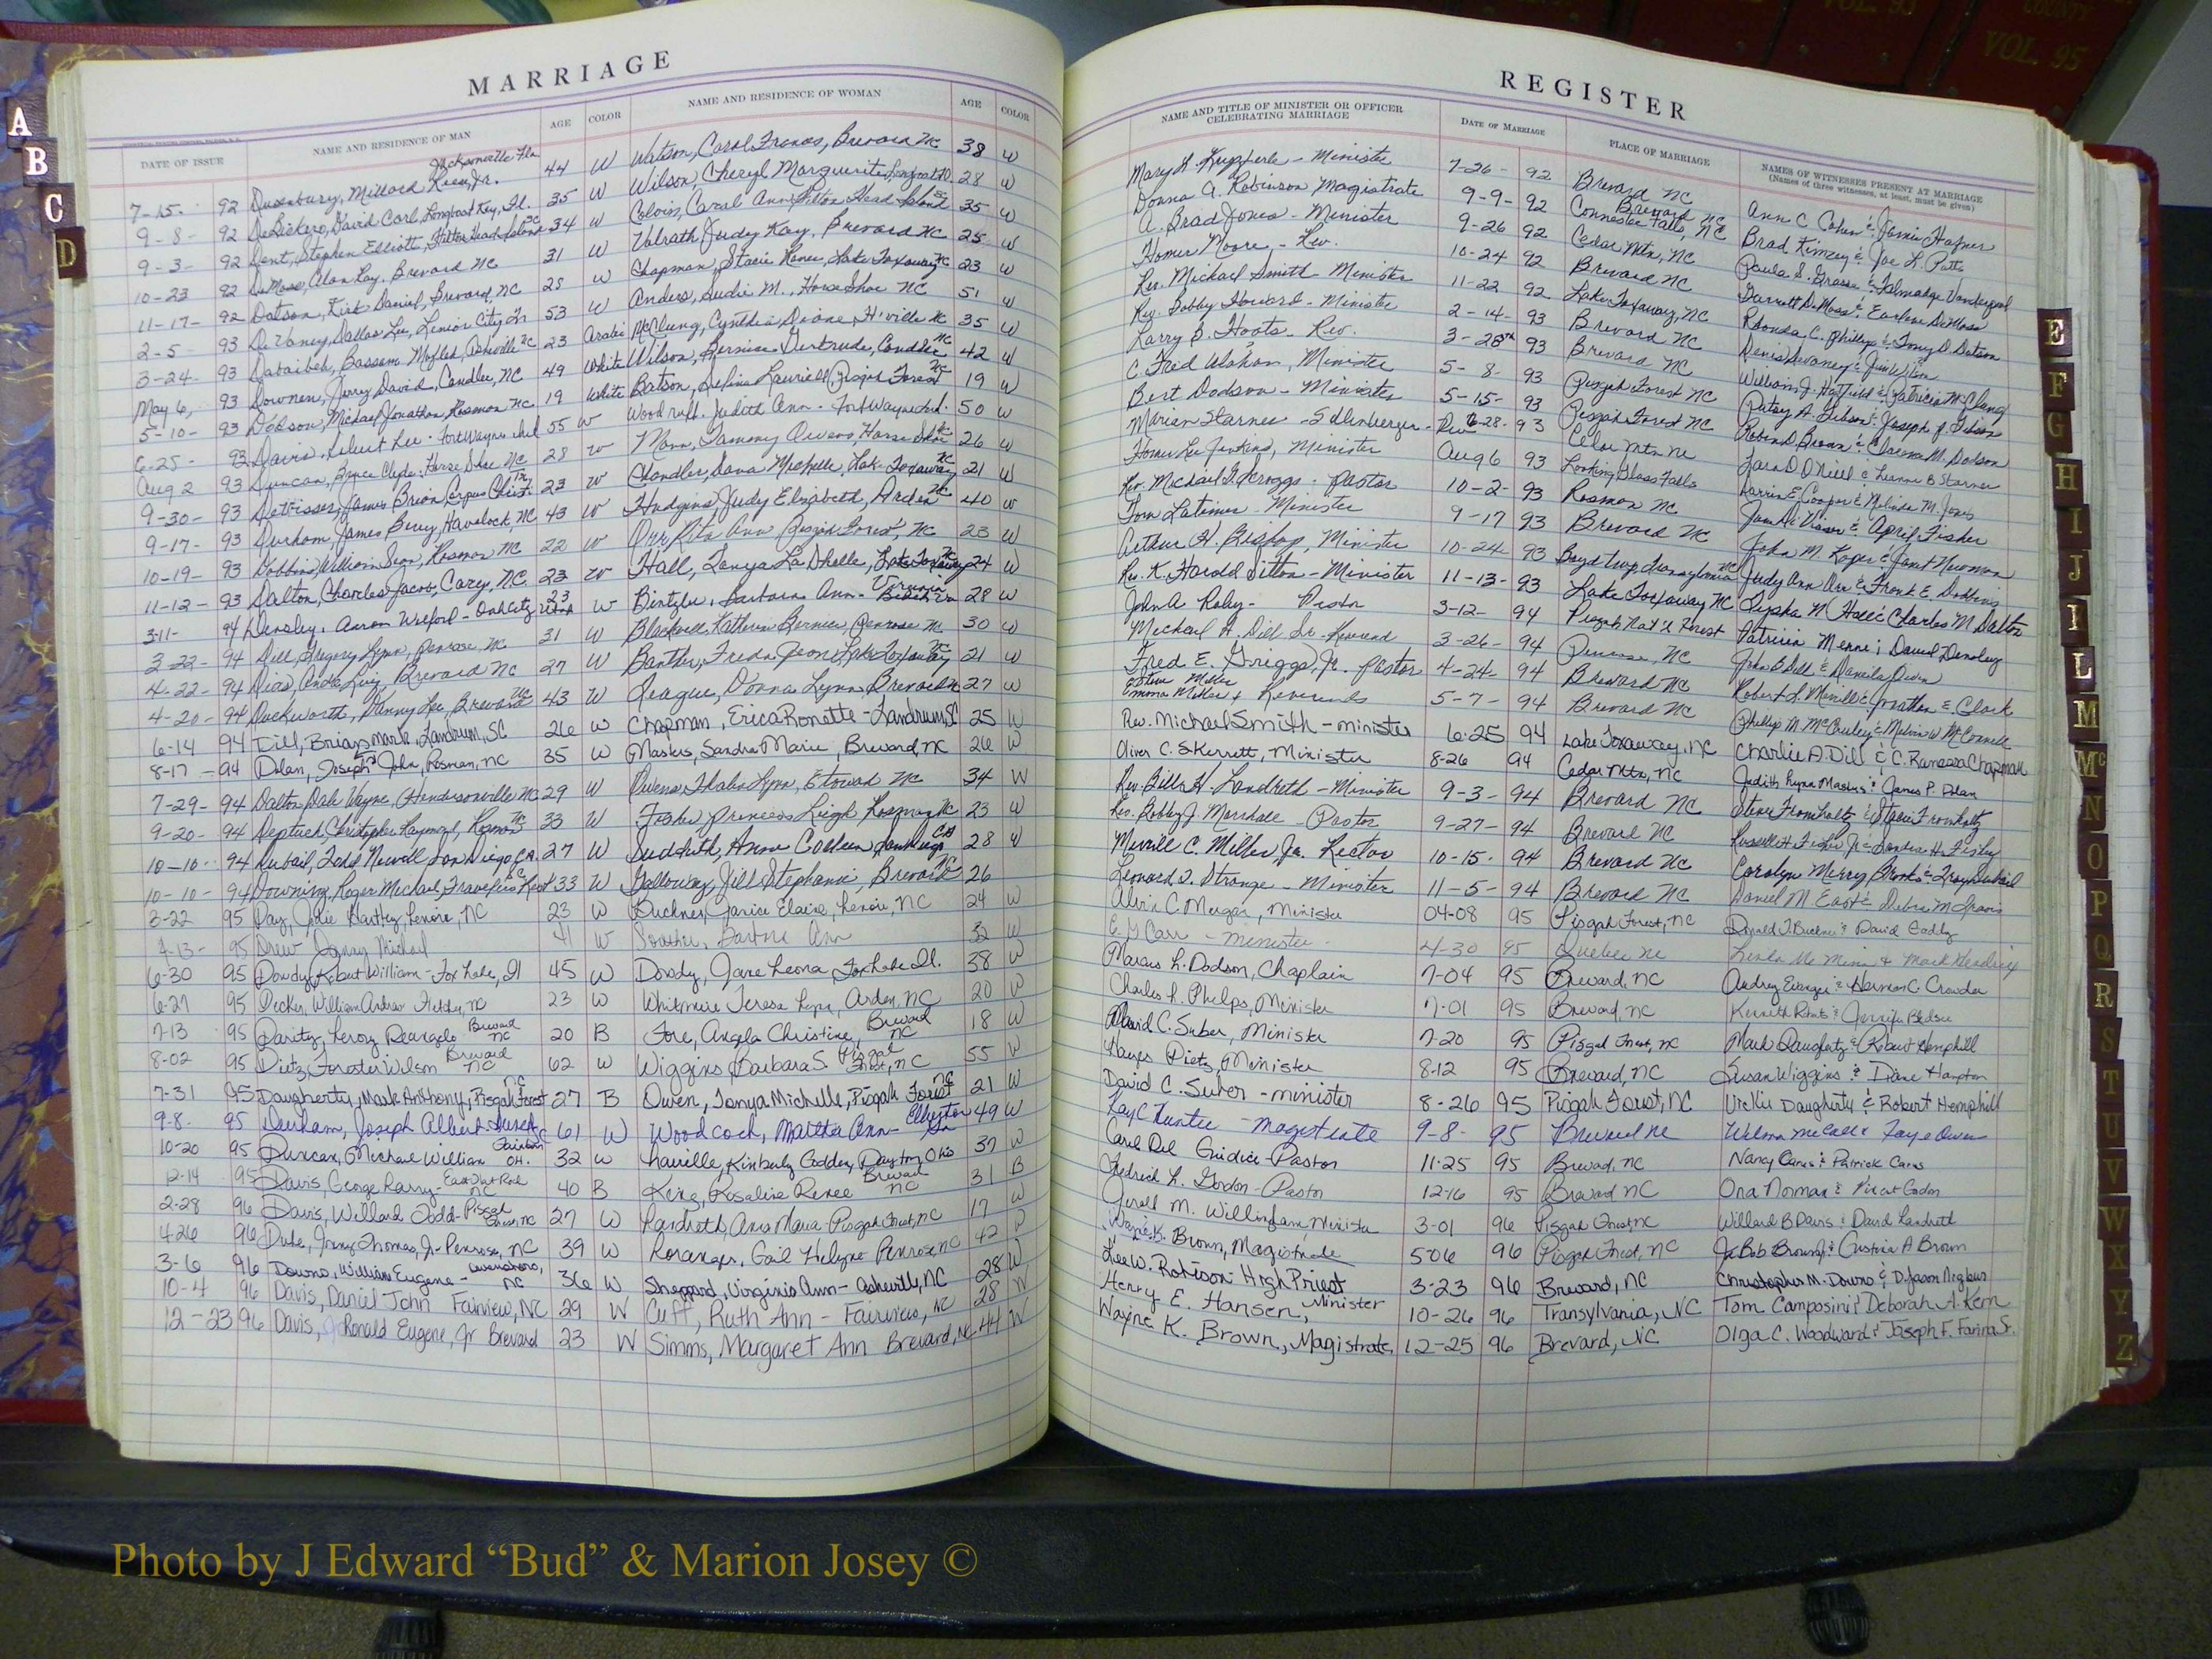 COUNTY
VOL. 93
VOL. 95
MARRIAGE
REGISTER
DATE OF ISSUE
NAME AND RESIDENCE OF MAN
AGE
COLOR
NAME AND RESIDENCE OF WOMAN
AGE
COLOR
NAME AND TITLE OF MINISTER OR OFFICER
CELEBRATING MARRIAGE
DATE OF MARRIAGE
PLACE OF MARRIAGE
NAMES OF WITNESSES PRESENT AT MARRIAGE
(Names of three witnesses, at least, must be given)
7-15- 92 Dusenbury, Millard Jr. Jacksonville Fla 44 W Watson, Carol Frances, Brevard NC 38 W
9-8- 92 David Carl, Longboat Key, Fl. 35 W Wilson, Cheryl Marguerite, Longboat 28 W
9-3- 92 Dent, Stephen Elliott, Hilton Head Island SC 34 W Carol Ann, Hilton Head Island SC 35 W
10-23 92 DeMoss, Alan Ray, Brevard NC 31 W Judy Kay, Brevard NC 25 W
11-17- 92 Dotson, Kirk Daniel, Brevard, NC 25 W Chapman, Stacie Renee, Lake Toxaway NC 23 W
2-5 93 DeVaney, Dallas Lee, Lenior City Tn 53 W Anders, M., Horse Shoe NC 51 W
3-24- 93 Dabaibeh, Bassam Mofleh, Asheville NC 23 Arabic McClung, Cynthia Diane, H'ville NC 35 W
May 6, 93 Downen, Jerry David, Candler, NC 49 White Wilson, Bernice Gertrude, Candler NC 42 W
5-10- 93 Dobson, Michael Jonathan, Rosman NC 19 White Batson, Pisgah Forest NC 19 W
6-25- 93 Davis, Robert Lee - Fort Wayne Ind 55 W Woodruff, Judith Ann - Fort Wayne Ind. 50 W
Aug 2 93 Duncan, Bruce Clyde, Horse Shoe NC 28 W Tammy Owens, Horse Shoe NC 26 W
9-30- 93 James Brian, Corpus Christi TX 23 W Chandler, Dana Michelle, Lake Toxaway NC 21 W
9-17- 93 Durham, James Berry, Havelock, NC 43 W Hudgins, Judy Elizabeth, Arden NC 40 W
10-19- 93 Dobbins, William Sean, Rosman NC 22 W Orr, Rita Ann, Pisgah Forest, NC 23 W
11-12- 93 Dalton, Charles Jacob, Cary, NC 23 W Hall, Tanya LaDhelle, Lake Toxaway NC 24 W
3-11- 94 Densley, Aaron - Utah 23 W Barbara Ann - Virginia 28 W
3-22- 94 Dill, Gregory Lynn, Penrose, NC 31 W Blackwell, Katherine Bernice, Penrose NC 30 W
4-22- 94 Dias, Andre Luiz, Brevard NC 27 W Banther, Freda Jeon, Lake Toxaway NC 21 W
4-20- 94 Duckworth, Danny Lee, Brevard NC 43 W Donna Lynn, Brevard NC 27 W
6-14 94 Dill, Brian Mark, Landrum, SC 26 W Chapman, Erica Ronette - Landrum, SC 25 W
8-17- 94 Dolan, Joseph John, Rosman, NC 35 W Maskus, Sandra Marie, Brevard, NC 26 W
7-29- 94 Dalton, Dale Wayne, Hendersonville NC 29 W Owens, Lynn, Etowah NC 34 W
9-20- 94 Christopher Raymond, Rosman NC 33 W Fisher, Princess Leigh, Rosman NC 23 W
10-10- 94 Dubail, Todd Newell, San Diego, CA 27 W Sudduth, Anne Colleen, San Diego CA 28 W
10-10- 94 Downing, Roger Michael, Travelers Rest SC 33 W Galloway, Jill Stephanie, Brevard NC 26
3-22 95 Day, Hartley, Lenoir, NC 23 W Buckner, Janice Elaine, Lenoir, NC 24 W
4-13- 95 Drew, Michael 41 W Ann 32 W
6-30 95 Dowdy, Robert William - Fox Lake, Il 45 W Dowdy, Jane Leona, Fox Lake Il. 38 W
6-27 95 Decker, William Andrew, Fletcher, NC 23 W Whitmire, Teresa Lynn, Arden, NC 20 W
7-13 95 Darity, Leroy Deangelo Brevard NC 20 B Fore, Angela Christine, Brevard NC 18 W
8-02 95 Dietz, Forester Wilson Brevard NC 62 W Wiggins, Barbara S. Pisgah Forest, NC 55 W
7-31 95 Daugherty, Mark Anthony, Pisgah Forest NC 27 B Owen, Tonya Michelle, Pisgah Forest NC 21 W
9-8- 95 Durham, Joseph Albert 61 W Woodcock, Martha Ann - 49 W
10-20 95 Duncan, Michael William Fairborn OH. 32 W Kimberly Godden, Dayton, Ohio 37 W
12-14 95 Davis, George Harry - East Flat Rock NC 40 B King, Rosalise Renee Brevard NC 31 B
2-28 96 Davis, Willard Todd - Pisgah Forest, NC 27 W Landreth, Anna Maria - Pisgah Forest, NC 17 W
4-26 96 Dube, Jonny Thomas, Jr - Penrose, NC 39 W Loranger, Gail Helyne Penrose, NC 42 W
3-6 96 Downs, William Eugene - Greensboro, NC 36 W Sheppard, Virginia Ann - Asheville, NC 28 W
10-4 96 Davis, Daniel John Fairview, NC 29 W Cuff, Ruth Ann - Fairview, NC 28 W
12-23 96 Davis, Ronald Eugene, Jr Brevard 23 W Simms, Margaret Ann Brevard, NC 44 W
Mary A. - Minister 7-26- 92 Brevard NC Ann C Cohen & Jamie Hafner
Donna A. Robinson Magistrate 9-9- 92 Connestee Falls, Brevard NC Brad Kimzey & Joe L. Patts
A. Brad Jones - Minister 9-26 92 Cedar Mtn, NC Paula S. & Talmadge
Homer Moore - Rev. 10-24 92 Brevard NC Garrett DeMoss & Earlene DeMoss
Rev. Michael Smith - Minister 11-22 92 Lake Toxaway, NC Rhonda C. Phillips & Tony D. Dotson
Rev. Bobby Howard - Minister 2-14- 93 Brevard NC Denis Devaney & Jim Wilson
Larry B. Hoots - Rev. 3-28th 93 Brevard NC William J. Hatfield & Patricia McClung
C. Fred, Minister 5-8- 93 Pisgah Forest NC Patsy A. Gibson & Joseph P. Gibson
Bert Dodson - Minister 5-15- 93 Pisgah Forest NC Robin D. Brown & M. Dodson
Marian Starnes - Edlenberger - Rev 6-28- 93 Cedar Mtn NC Tara D. O'Neill & Leanne B Starnes
Homer Lee Jenkins, Minister Aug 6 93 Looking Glass Falls Darrin E. Cooper & Melinda M. Jones
Rev. Michael T. Scroggs - Pastor 10-2- 93 Rosman NC & April Fisher
Tom Latimer - Minister 9-17 93 Brevard NC John M. Roper & Janet Newman
Arthur H. Bishop, Minister 10-24- 93 Boyd twp Transylvania NC Judy Ann Orr & Frank E. Dobbins
Rev. K. Harold Sitton - Minister 11-13- 93 Lake Toxaway NC M Hall & Charles M Dalton
John A Roby - Pastor 3-12- 94 Pisgah Nat'l Forest Patricia & David Densley
Michael H. Dill Sr. - Reverend 3-26- 94 Penrose, NC John B Dill & Daniela
Fred E. Griggs, Jr. Pastor 4-24- 94 Brevard NC Robert L. & Jonathan E. Clark
Emma Miller & Reverends 5-7- 94 Brevard NC Phillip M McCauley & Melvin W McConnell
Rev. Michael Smith - minister 6-25 94 Lake Toxaway, NC Charlie A. Dill & C. Ranessa Chapman
Oliver C. Skerrett, Minister 8-26 94 Cedar Mtn, NC Judith Lynn Maskus & James P. Dolan
Rev. Billy H. Landreth - Minister 9-3- 94 Brevard NC Steve Fromholtz & Stacie Fromholtz
Rev. Bobby J. - Pastor 9-27- 94 Brevard NC Russell H Fisher Jr & Sandra H. Fisher
Merrill C. Miller, Jr. Rector 10-15- 94 Brevard NC Carolyn Merry Brooks & Troy Dubail
Leonard T. Strange - Minister 11-5- 94 Brevard NC Daniel M East & Debra M
Alvin C. Morgan, Minister 04-08 95 Pisgah Forest, NC Donald J. Buckner & David
Carr - Minister 4-30 95 Quebec NC
Marcus L. Dodson, Chaplain 7-04 95 Brevard, NC Audrey & Harmon C. Crowder
Charles R. Phelps, Minister 7-01 95 Brevard, NC Kenneth & Jennifer Bledsoe
David C. Suber, Minister 7-20 95 Pisgah Forest, NC Mark Daugherty & Robert Hemphill
Hayes Dietz, Minister 8-12 95 Brevard, NC Susan Wiggins & Diane Hampton
David C. Suber - minister 8-26 95 Pisgah Forest, NC Vickie Daugherty & Robert Hemphill
Kay C Hunter - Magistrate 9-8- 95 Brevard NC Wilma McCall & Faye Owen
Carol Del Guidice - Pastor 11-25 95 Brevard, NC Nancy Carns & Patrick Carns
Fedrick L. Gordon - Pastor 12-16 95 Brevard NC Ona Norman & Gordon
Jerall M. Willingham, Minister 3-01 96 Pisgah Forest, NC Willard B Davis & David Landreth
Wayne K. Brown, Magistrate 5-06 96 Pisgah Forest, NC Bob Brown & Cristina A Brown
Lee W. Robison High Priest 3-23 96 Brevard, NC Christopher M. Downs & D. Jason
Henry E. Hansen, Minister 10-26 96 Transylvania, NC Tom Camposini & Deborah A. Kern
Wayne K. Brown, Magistrate 12-25 96 Brevard, NC Olga C. Woodward & Joseph F. Farina Sr.
A
B
C
D
E
F
G
H
I
J
L
M
Mc
N
O
P
Q
R
S
T
U
V
W
X
Y
Z
Photo by J Edward “Bud” & Marion Josey ©